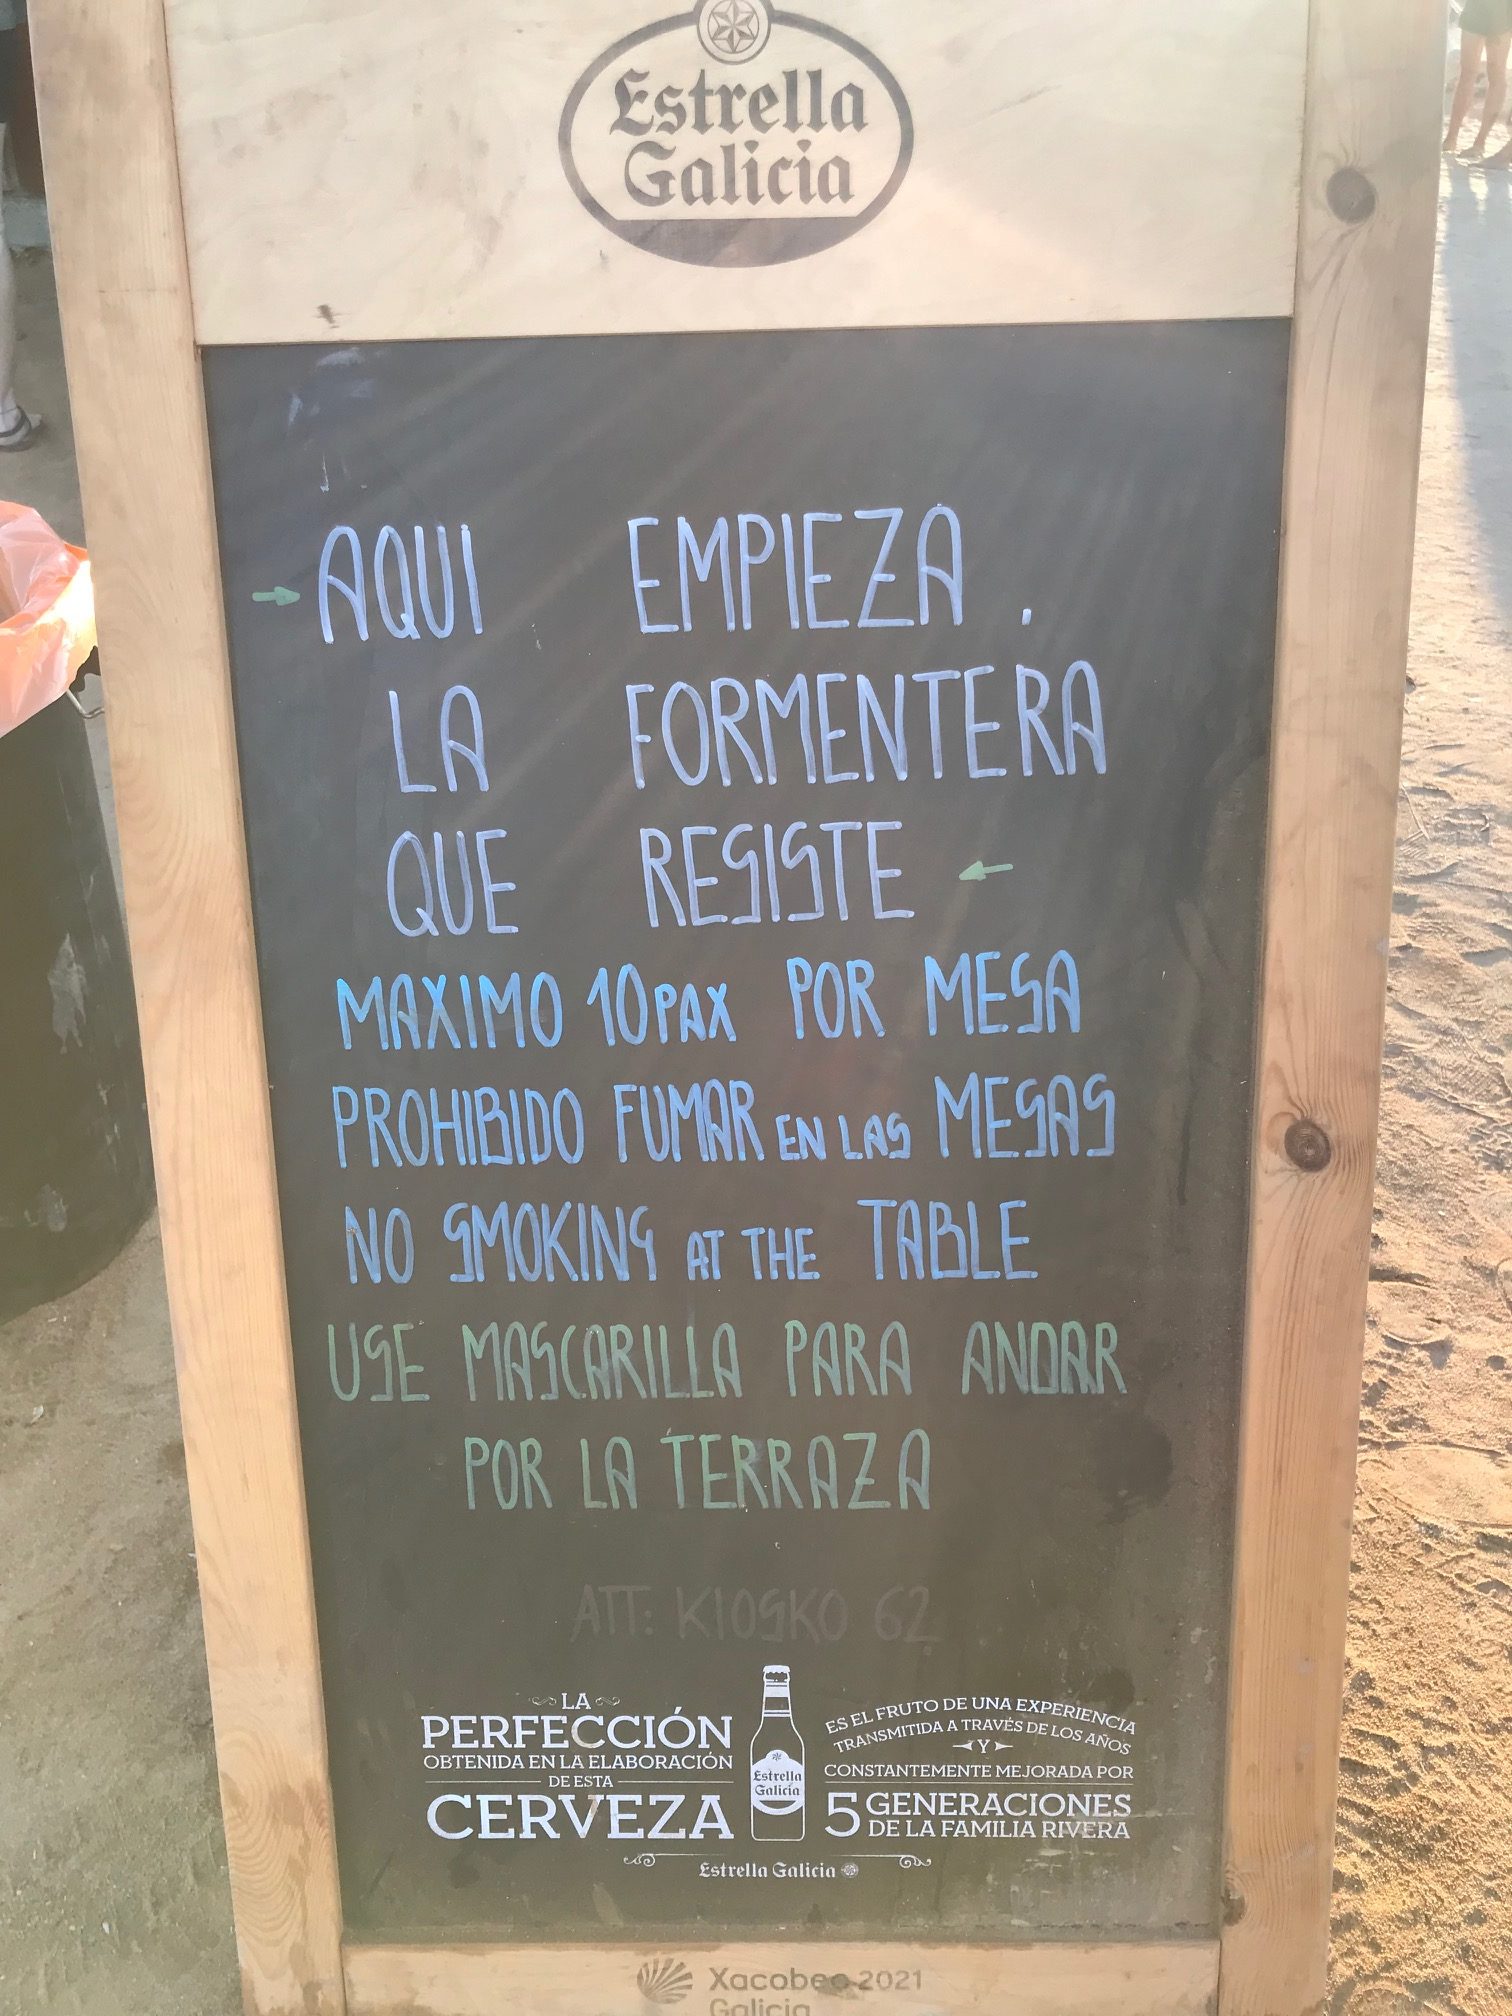 Estrella
Galicia
AQUI EMPIEZA .
LA FORMENTERA
QUE RESISTE
MAXIMO 10PAX POR MESA
PROHIBIDO FUMAR EN LAS MESAS
NO SMOKING AT THE TABLE
USE MASCARILLA PARA ANDAR
POR LA TERRAZA
ATT: KIOSKO 62
LA
PERFECCIÓN
OBTENIDA EN LA ELABORACIÓN
DE ESTA
CERVEZA
Estrella
Galicia
ES EL FRUTO DE UNA EXPERIENCIA
TRANSMITIDA A TRAVÉS DE LOS AÑOS
Y
CONSTANTEMENTE MEJORADA POR
5 GENERACIONES
DE LA FAMILIA RIVERA
Estrella Galicia
Xacobeo 2021
Galicia